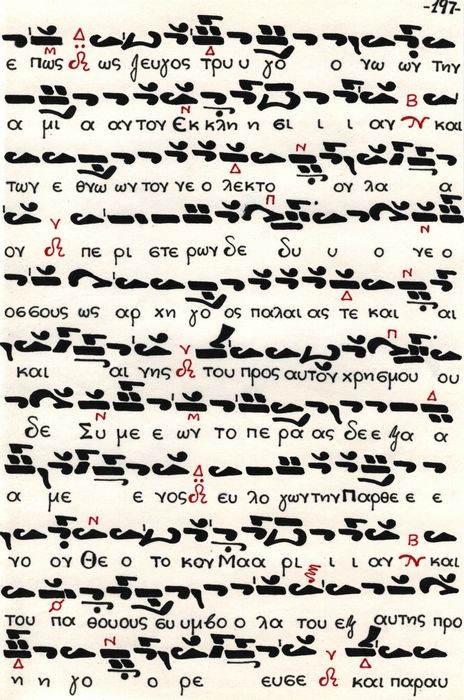 -197-
ε πως ως ζευγος τρυ υ γο ο νω ων την
α μι α αν τον Εκ κλη η σι ι ι αν και
των ε θνω ων τον νε ο λεκτο ον λα α
ον πε ρι στε ρων δε δυ υ ο νε ο
οσσους ως αρ χη γο ος παλαι ας τε και αι
και αι νης του προς αυτον χρησμου ου
δε Συ με ε ων το πε ρα ας δε ε ξα α
α με ε νος ευ λο γων την Παρθε ε ε
νο ον Θε ο το κον Μα α ρι ι ι αν και
του πα θου ους συ υμβο ο λα του εξ αυτης προ
η η γο ο ρε ευσε και παραυ